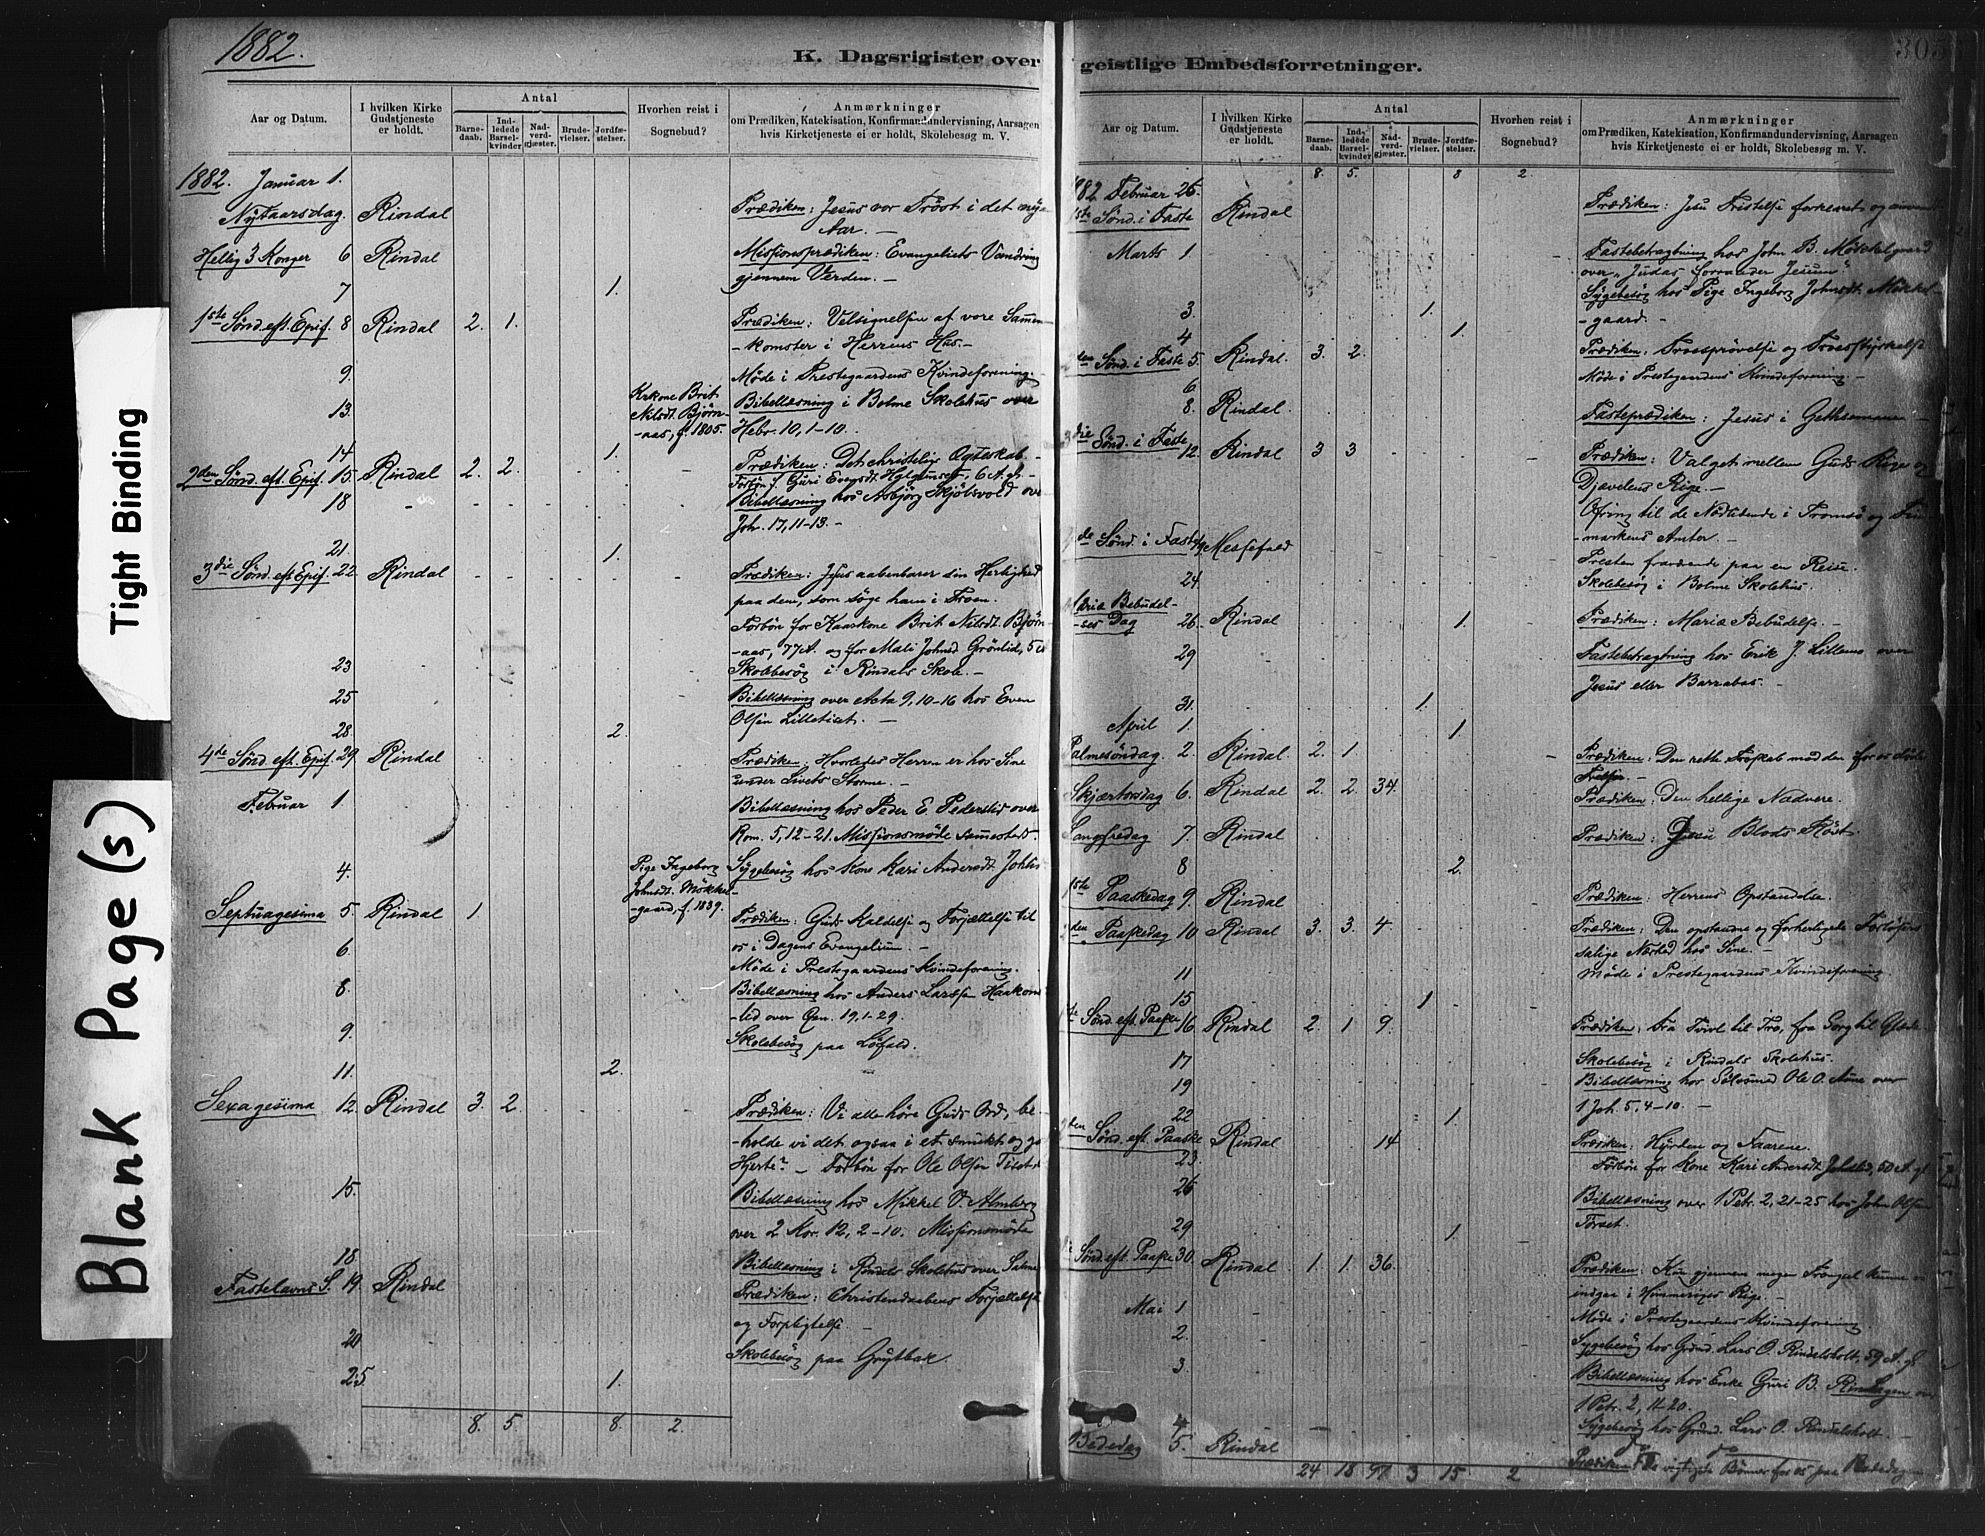 1882.
K. Dagsrigister over
Aar og Datum.
I hvilken Kirke
Gudstjeneste
er holdt.
Antal
Barne-
daab.
Ind-
ledede
Barsel-
kvinder
Nad-
verd-
gjæster.
Brude-
vielser.
Jordfæ-
stelser.
Hvorhen reist i
Sognebud?
Anmærkninger
om Prædiken, Katekisation, Konfirmandundervisning, Aarsagen
hvis Kirketjeneste ei er holdt, Skolebesøg m. V.
1882. Januar 1.
Nytaarsdag. Rindal Prædiken: Jesus vor Trøst i det nye
Aar. —
Hellig 3 Konger 6 Rindal Missionsprædiken: Evangeliets Vandring
gjennem Verden. —
7 1.
1ste Sønd. eft. Epif. 8 Rindal 2. 1. Prædiken: Velsignelsen af vore Sammen
-komster i Herrens Hus. —
9. Møde i Prestegaardens Kvindeforening. —
13. Krkone Brit
Nilsdt. Bjørn-
-aas, f. 1805. Bibellæsning i Bolme Skolehus over
Hebr. 10, 1-10.
14 1.
2den Sønd. eft. Epif. 15. Rindal 2. 2. Prædiken: Det christelige Ægteskab.
Forbøn f. Guri Evensdt. 6 A. gl.
18 Bibellæsning hos Asbjørg over
Joh. 17, 11-13. —
21. 1.
3die Sønd. eft. Epif. 22. Rindal Prædiken: Jesus aabenbarer sin Herlighed
paa dem, som søge ham i Troen.
Forbøn for Kaarkone Brit Nilsdt. Bjørn-
-aas, 77 A. og for Mali Johnsd. Grønlid, 5
23 Skolebesøg i Rindals Skole. —
25 Bibellæsning over Acta 9, 10-16 hos Even
Olsen Lilletiset. —
28 2.
4de Sønd. eft. Epif. 29. Rindal Prædiken: Hvorledes Herren er hos Sine
under Livets Storme. —
Februar 1 Bibellæsning hos Peder E. Pederslid over
Rom. 5, 12-21. Missionsmøde sammesteds
4. Pige Ingeborg
Johnsdt. Møkkel-
-gaard, f. 1839. Sygebesøg hos Kone Kari Andersdt. Johns
Septuagesima 5. Rindal 1 Prædiken: Guds Kaldelse og Forjættelse til
os i Dagens Evangelium. —
6. Møde i Prestegaardens Kvindeforening.
8. Bibellæsning hos Anders Larssen Haakons
-lid over Gen. 19, 1-29.
9. Skolebesøg paa Løfald.
11. 2.
Sexagesima 12. Rindal 3. 2. Prædiken: Vi alle høre Guds Ord, be-
-holde vi det ogsaa i et smukt og godt
Hjerte? — Forbøn for Ole Olsen
15. Bibellæsning hos Mikkel O. Almberg
over 2 Kor. 12, 2-10. Missionsmøde
18 Bibellæsning i Rindals Skolehus over Salme
Fastelavns S. 19. Rindal Prædiken: Christendaabens Forjættelse
og Forpligtelse. —
20 Skolebesøg paa Grytbak.
25. 1.
8. 5. 8. 2.
geistlige Embedsforretninger.
305
Aar og Datum.
I hvilken Kirke
Gudstjeneste
er holdt.
Antal
Barne-
daab.
Ind-
ledede
Barsel-
kvinder
Nad-
verd-
gjæster.
Brude-
vielser.
Jordfæ-
stelser.
Hvorhen reist i
Sognebud?
Anmærkninger
om Prædiken, Katekisation, Konfirmandundervisning, Aarsagen
hvis Kirketjeneste ei er holdt, Skolebesøg m. V.
8. 5. 8 2.
1882 Februar 26.
1ste Sønd. i Faste Rindal Prædiken: Jesu Fristelse forklaret og
Marts 1 Fastebetragtning hos John B. Møkkelgaard
over „Judas forraader Jesum“.
Sygebesøg hos Pige Ingeborg Johnsdt. Møkkel-
3. 1. -gaard. —
4 1.
2den Sønd. i Faste 5. Rindal. 3. 2. Prædiken: Troesprøvelse og Troesstyrkelse
6 Møde i Prestegaardens Kvindeforening. —
8. Rindal. Fasteprædiken: Jesus i Gethsemane
3die Sønd. i Faste 12. Rindal 3 3 Prædiken: Valget mellem Guds Rige og
Djævelens Rige. —
Ofring til de Nødlidende i Tromsø og Fin-
-markens Amter. —
4de Sønd. i Faste 19 Messefald Presten fraværende paa en Reise.
24. Skolebesøg i Bolme Skolehus.
Mariæ Bebudel-
-ses Dag 26. Rindal 1. Prædiken: Mariæ Bebudelse. —
29 Fastebetragtning hos Erik J. Lillemo over
Jesus eller Barrabas. —
31. 1.
April 1. 1
Palmesøndag. 2. Rindal. 2. 1 Prædiken: Den rette Troskab mod den for os døde
Frelser. —
Skjærtorsdag 6. Rindal 2. 2. 34. Prædiken: Den hellige Nadvere.
Langfredag 7. Rindal Prædiken: Jesu Blods Røst.
8 2.
1ste Paaskedag 9. Rindal Prædiken: Herrens Opstandelse.
2den Paaskedag 10 Rindal 3. 3. 4. Prædiken: Den opstandne og forherligede Forløsers
salige Nærhed hos Sine. —
11 Møde i Prestegaardens Kvindeforening.
15 1
1ste Sønd. eft. Paaske 16. Rindal 2. 1 9. Prædiken: Fra Tvivl til Tro, fra Sorg til Glæde.
17 Skolebesøg i Rindals Skolehus.
19 Bibellæsning hos Ole O. Aune over
1 Joh. 5, 4-10. —
22 1.
2den Sønd. eft. Paaske 23. Rindal 14 Prædiken: Hyrden og Faarene.
Forbøn for Kone Kari Andersdt. Johnslid, 50 A. gl.
26 Bibellæsning over 1 Petr. 2, 21-25 hos John Olsen
Torset.
29 1.
Sønd. eft. Paaske 30. Rindal 1 1 36. Prædiken: Kun gjennem megen Trængsel kunne vi
indgaa i Himmeriges Rige. —
Mai 1 Møde i Prestegaardens Kvindeforening
2. Sygebesøg hos Grdmd. Lars O. Rindalsholt, 59 A. gl.
3. Bibellæsning hos Enke Guri B. over
1 Petr. 2, 11-20.
4 Sygebesøg hos Grdmd. Lars O. Rindalsholt. —
Bededag 5. Rindal Prædiken: De vigtigste Bønner for os paa Bededagen
24 18 97 3 15 2
Tight Binding
Blank Page(s)